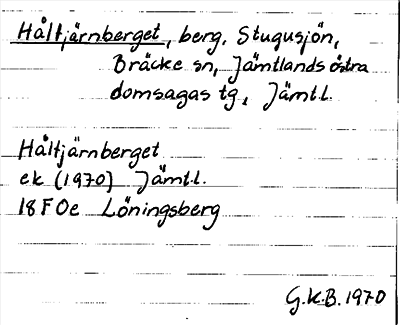 Håltjärnberget, berg, Stugusjön,
Bräcke sn, Jämtlands östra
domsagas tg, Jämtl.
Håltjärnberget
ek (1970) Jämtl.
18F0e Löningsberg
G.K.B. 1970